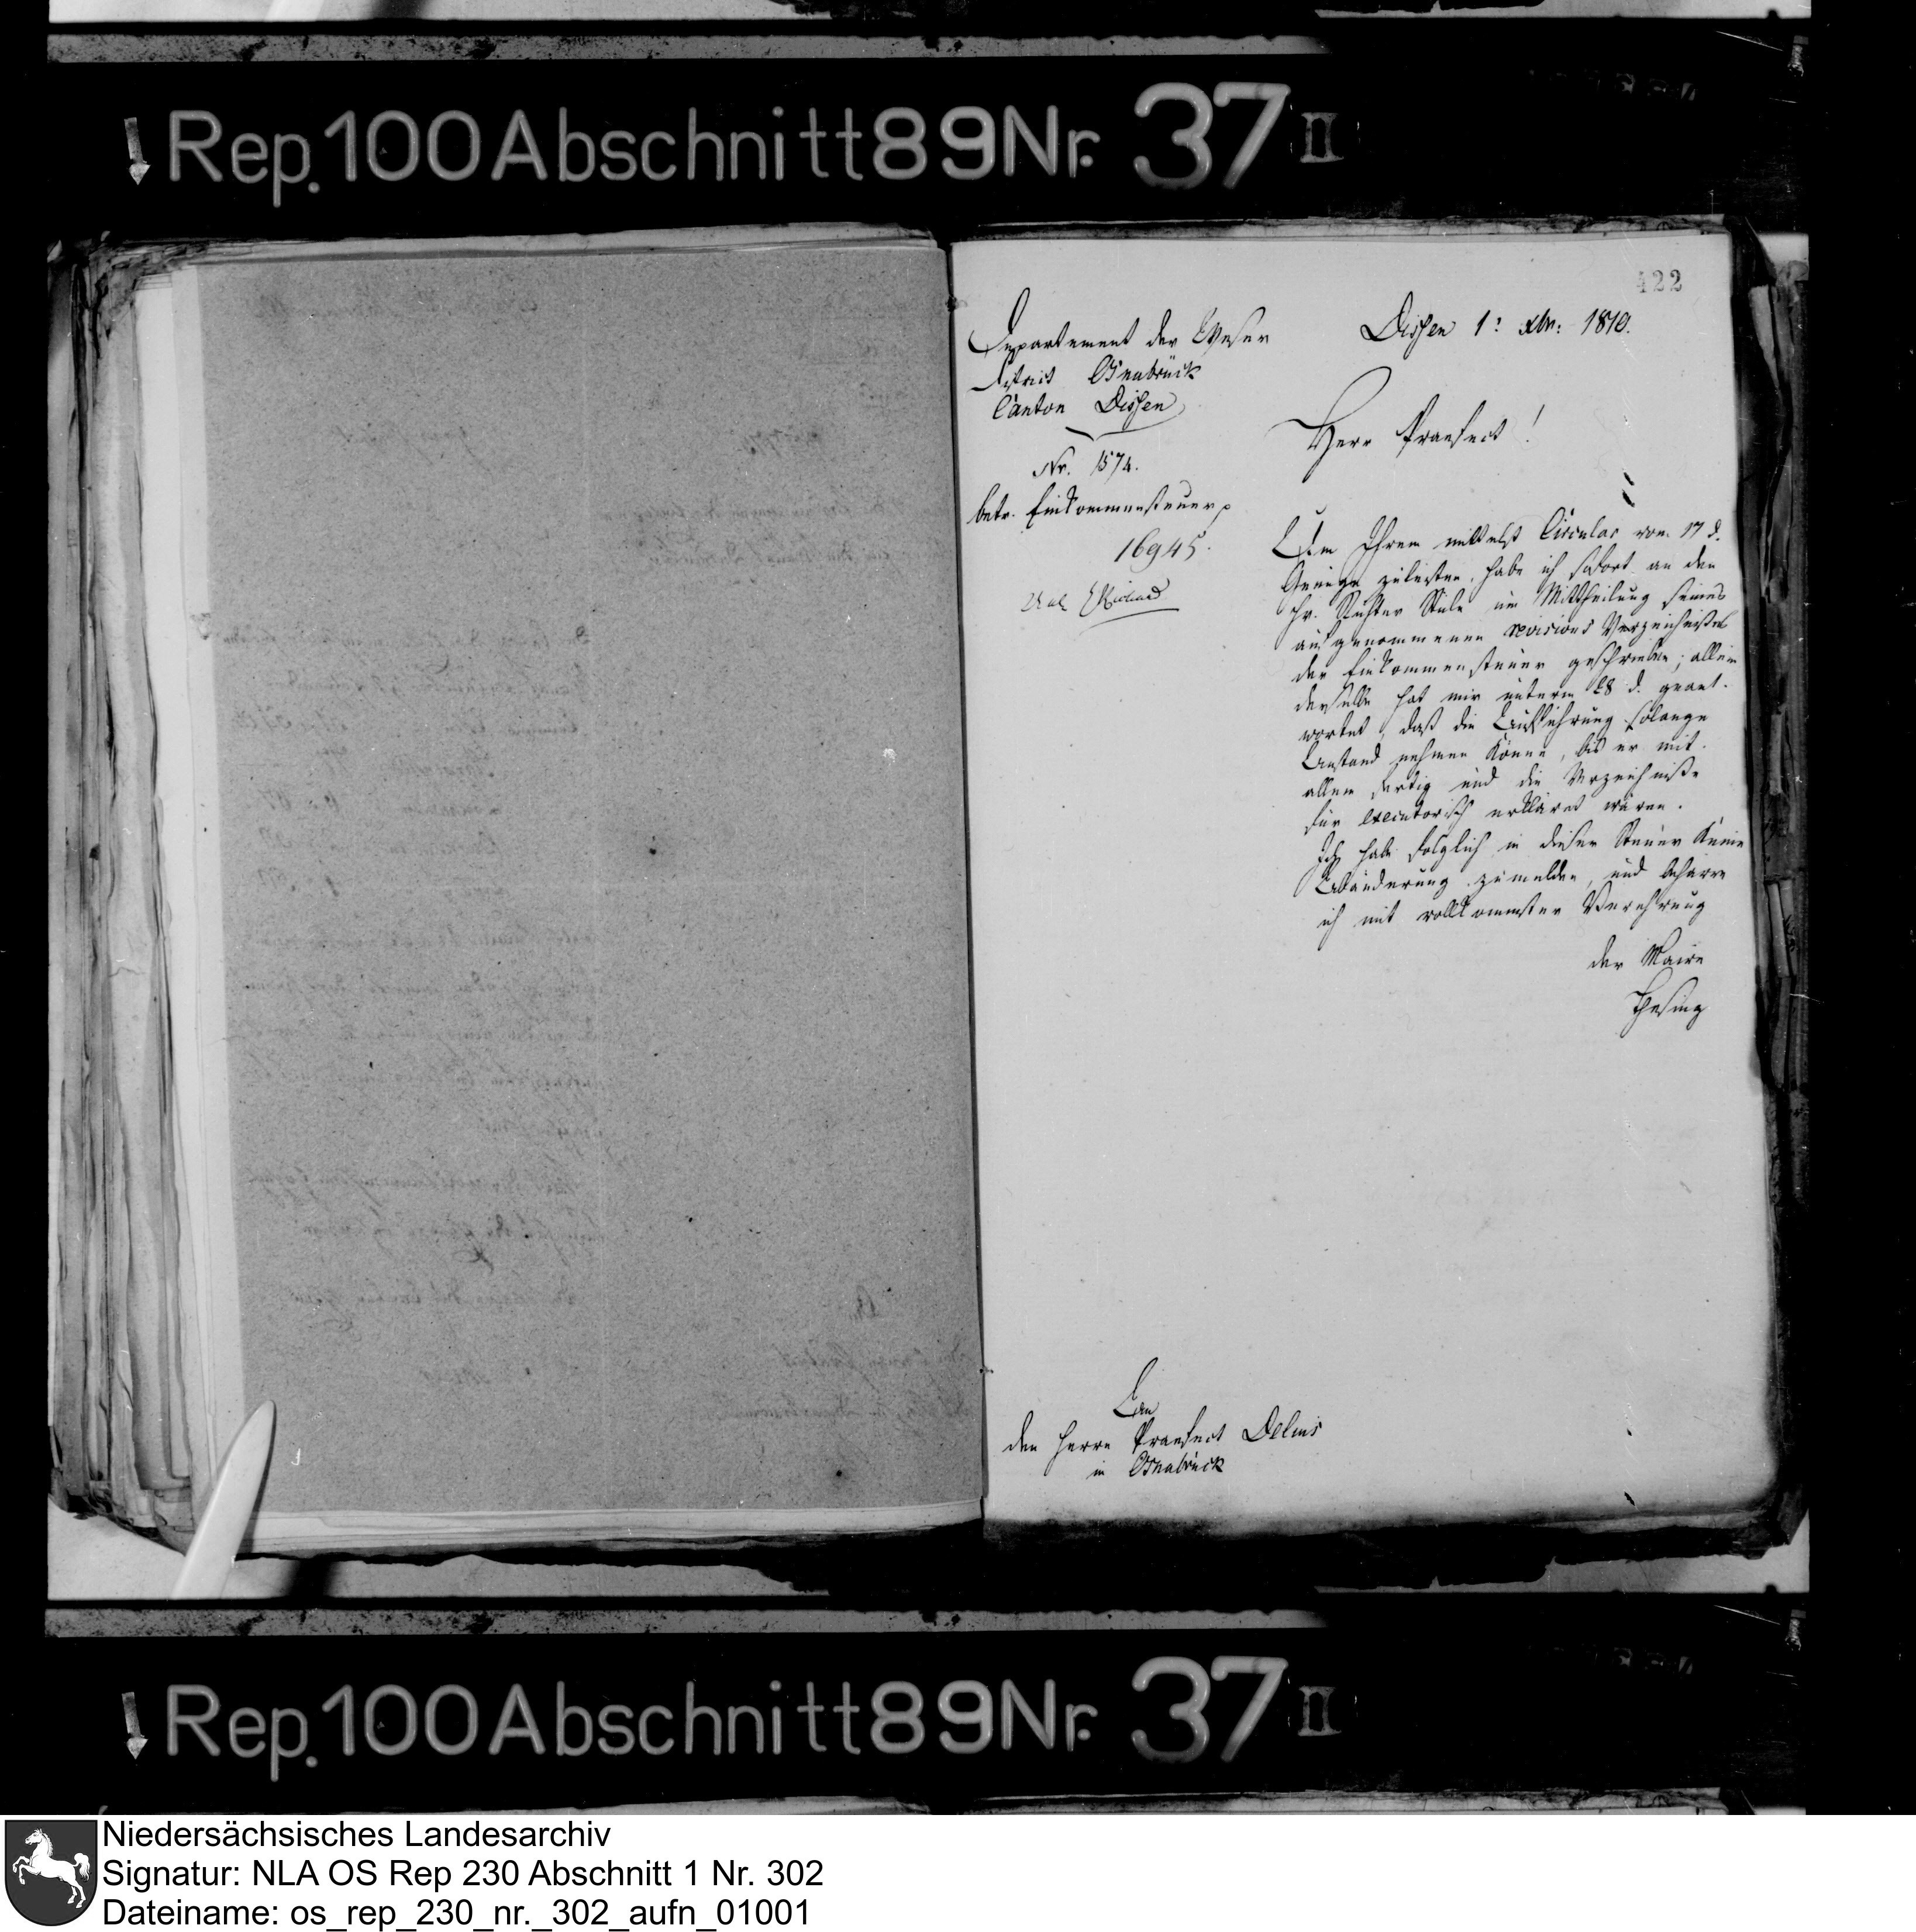 Rep. 100 Abschnitt 89 Nr. 37 II
422
Departement der Weser
District Osnabrück
Canton Dissen
Nr. 1574.
betr. Einkommensteuer
16945.
Dissen 1: xbr: 1810.
Herr Praefect!
Um Ihrem mittelst Circular vom 17 d.
Genüge zu leisten, habe ich sofort an den
Hr. Richter Stüle um Mittheilung seines
aufgenommenen revisions Verzeichnisses
der Einkommensteuer geschrieben; allein
derselbe hat mir unterm 28 d. geant-
wortet, daß die Ausführung solange
Anstand nehmen könne, bis er mit
allem fertig und die Verzeichnisse
für executorisch erkläret wären.
Ich habe folglich in dieser Steuer keine
Abänderung zu melden, und beharre
ich mit vollkommster Verehrung
der Maire
Thesing
An
den Herrn Praefect Delius
in Osnabrück
Rep. 100 Abschnitt 89 Nr. 37 II
Niedersächsisches Landesarchiv
Signatur: NLA OS Rep 230 Abschnitt 1 Nr. 302
Dateiname: os_rep_230_nr._302_aufn_01001